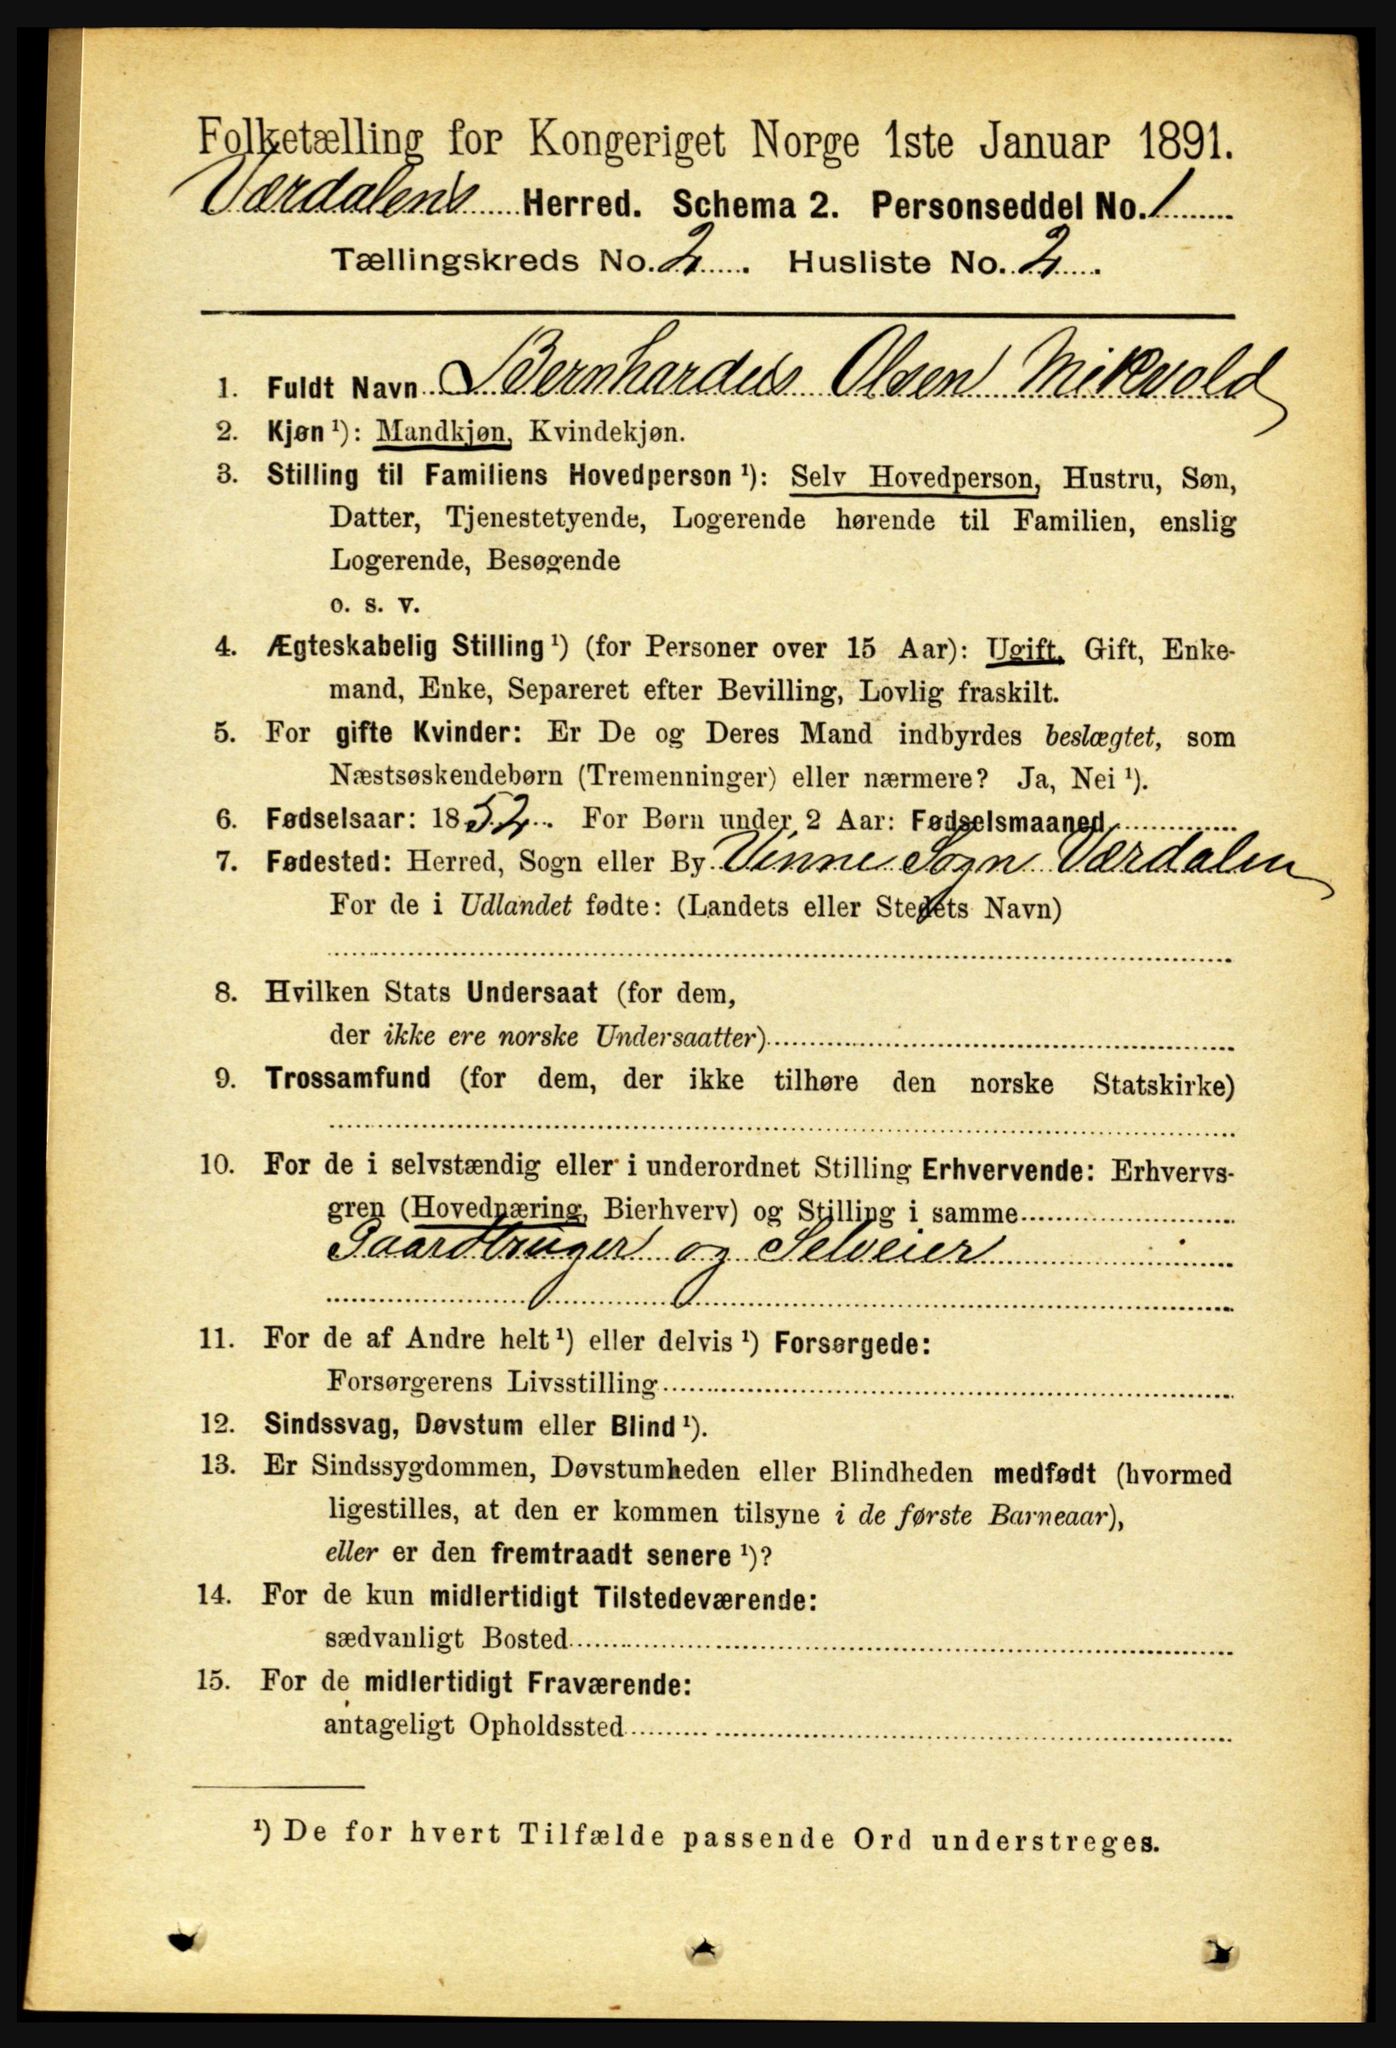 Folketælling for Kongeriget Norge 1ste Januar 1891.
Værdalens Herred. Schema 2. Personseddel No. 1
Tællingskreds No. 2. Husliste No. 2.
1. Fuldt Navn Bernhardus Olsen Mikvold
2. Kjøn ¹): Mandkjøn, Kvindekjøn.
3. Stilling til Familiens Hovedperson ¹): Selv Hovedperson, Hustru, Søn,
Datter, Tjenestetyende, Logerende hørende til Familien, enslig
Logerende, Besøgende
o. s. v.
4. Ægteskabelig Stilling ¹) (for Personer over 15 Aar): Ugift, Gift, Enke-
mand, Enke, Separeret efter Bevilling, Lovlig fraskilt.
5. For gifte Kvinder: Er De og Deres Mand indbyrdes beslægtet, som
Næstsøskendebørn (Tremenninger) eller nærmere? Ja, Nei ¹).
6. Fødselsaar: 1852. For Børn under 2 Aar: Fødselsmaaned
7. Fødested: Herred, Sogn eller By Vinne Sogn Værdalen
For de i Udlandet fødte: (Landets eller Stedets Navn)
8. Hvilken Stats Undersaat (for dem,
der ikke ere norske Undersaatter)
9. Trossamfund (for dem, der ikke tilhøre den norske Statskirke)
10. For de i selvstændig eller i underordnet Stilling Erhvervende: Erhvervs-
gren (Hovednæring, Bierhverv) og Stilling i samme
Gaardbruger og Selveier
11. For de af Andre helt ¹) eller delvis ¹) Forsørgede:
Forsørgerens Livsstilling
12. Sindssvag, Døvstum eller Blind ¹).
13. Er Sindssygdommen, Døvstumheden eller Blindheden medfødt (hvormed
ligestilles, at den er kommen tilsyne i de første Barneaar),
eller er den fremtraadt senere ¹)?
14. For de kun midlertidigt Tilstedeværende:
sædvanligt Bosted
15. For de midlertidigt Fraværende:
antageligt Opholdssted
¹) De for hvert Tilfælde passende Ord understreges.